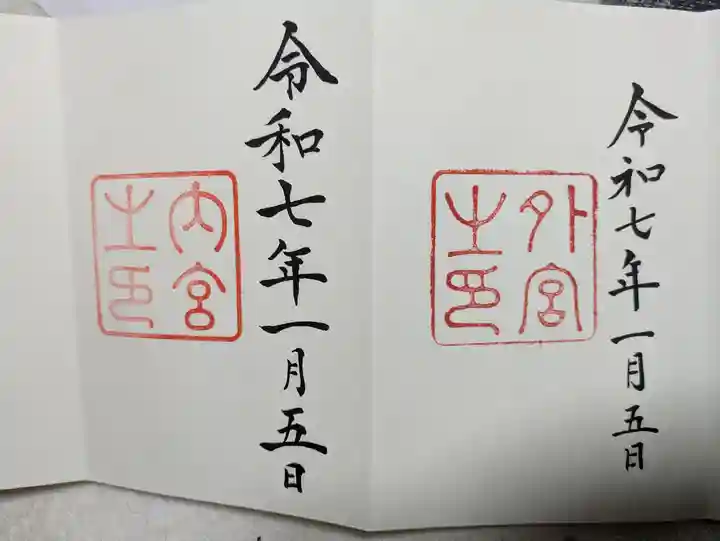 外宮
之印
令和七年一月五日
内宮
之印
令和七年一月五日